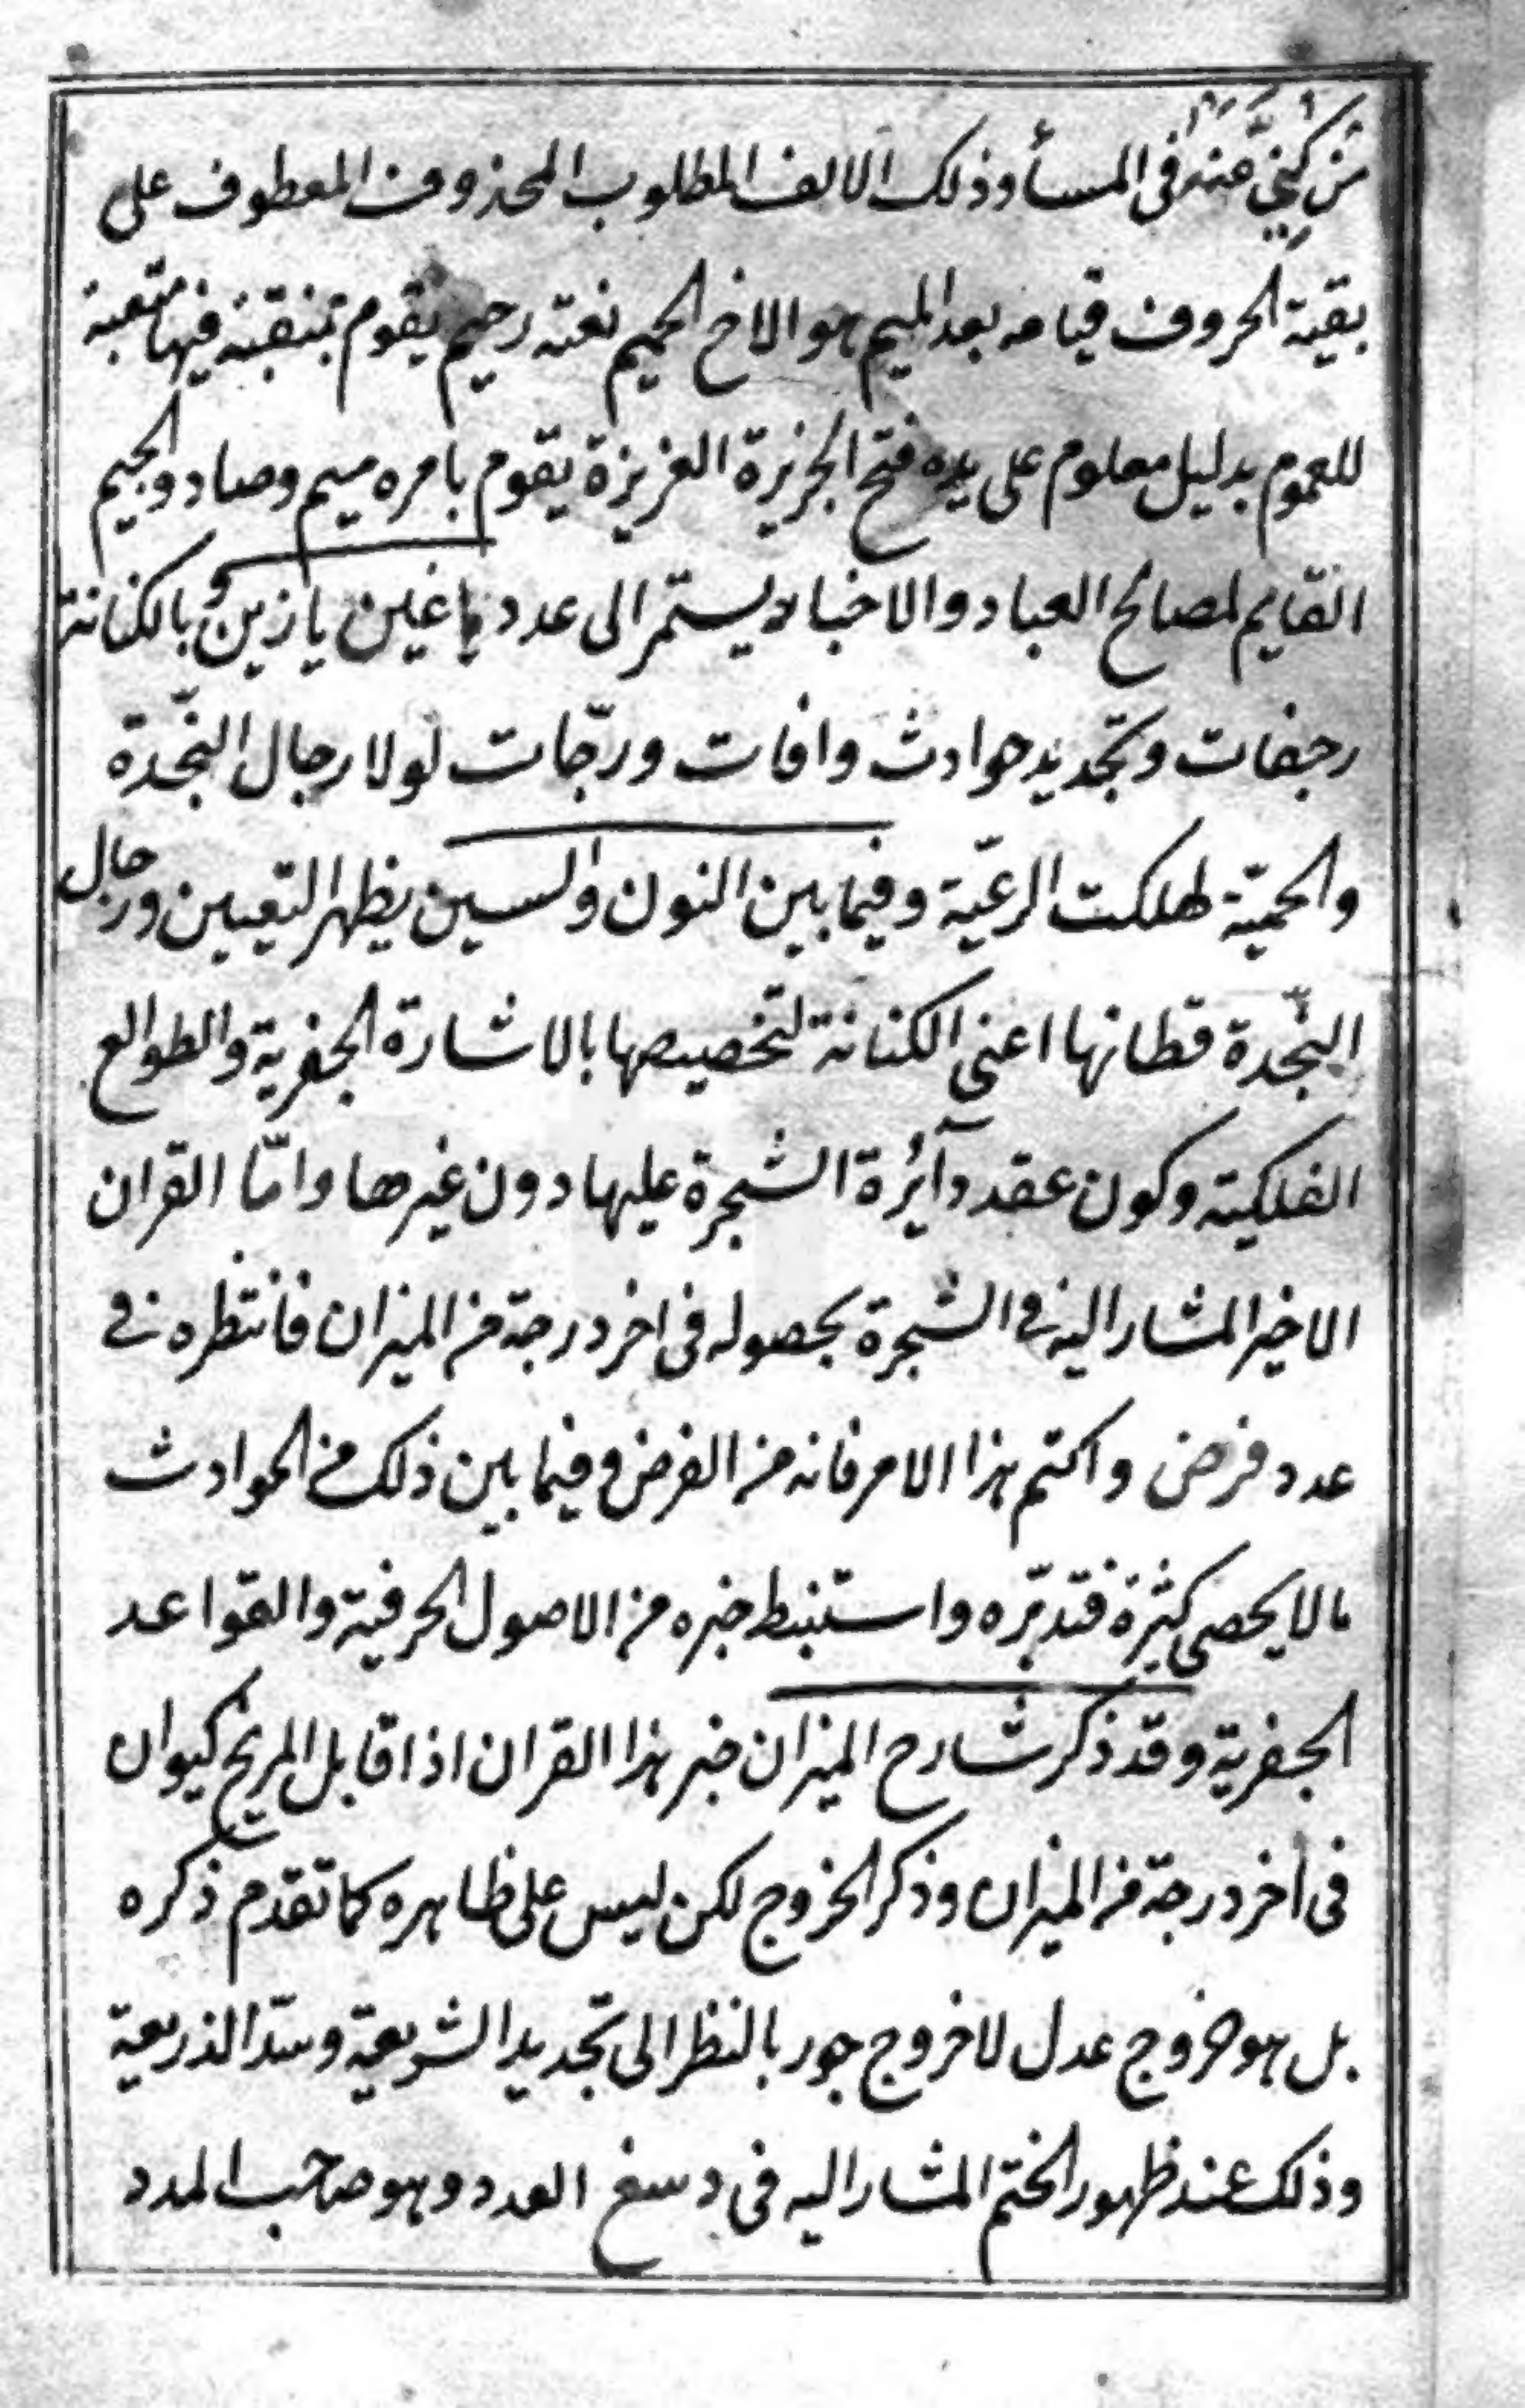 من كنّي عنه في المسأ وذلك الالف المطلوب المحذوف المعطوف على
بقية الحروف قيامه بعد الميم هو الاخ الحميم نعته رحيم يقوم بمنقبة فيها متعبة
للعموم بدليل معلوم على يده فتح الجزيرة العزيزة يقوم بامره ميم وصاد والجيم
القايم لمصالح العباد والاخبار يستمر الى عدد يا غين يا زين بالكنانة
رجفات وتجديد حوادث وافات ورجّات لولا رجال النجّدة
والحميّة لهلكت الرعيّة وفيما بين النون والسين يظهر التعيين ورجال
النجّدة قطانها اعنى الكنانة لتخصيصها بالاشارة الجفرية والطوالع
الفلكية وكون عقد دآئرة الشجرة عليها دون غيرها وامّا القران
الاخير المشار اليه في الشجرة بحصوله في اخر درجة من الميزان فانتظره في
عدد فرض واكتم هذا الامر فانه من الفرض وفيما بين ذلك من الحوادث
مالا يحصى كثرة فتدبّره واستنبط خبره من الاصول الحرفية والقواعد
الجفرية وقد ذكر شارح الميزان خبر هذا القران اذا قابل المريخ كيوان
في اخر درجة من الميزان وذكر الخروج لكن ليس على ظاهره كما تقدم ذكره
بل هو خروج عدل لا خروج جور بالنظر الى تجديد الشريعة وسدّ الذريعة
وذلك عند ظهور الختم المشار اليه في دسغ العدد وهو صاحب المدد